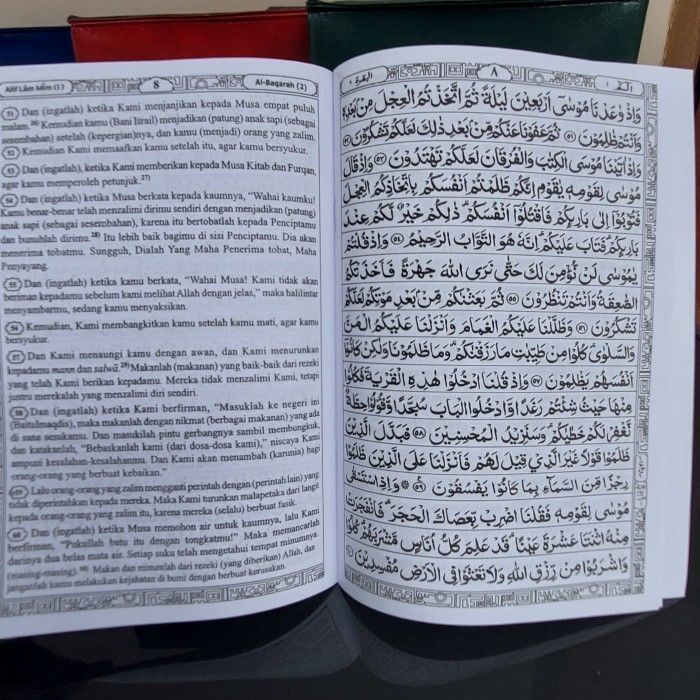 Alif Lâm Mîm (1) 8 Al-Baqarah (2)
51 Dan (ingatlah) ketika Kami menjanjikan kepada Musa empat puluh
malam. 26) Kemudian kamu (Bani Israil) menjadikan (patung) anak sapi (sebagai
sesembahan) setelah (kepergian)nya, dan kamu (menjadi) orang yang zalim.
52 Kemudian Kami memaafkan kamu setelah itu, agar kamu bersyukur.
53 Dan (ingatlah), ketika Kami memberikan kepada Musa Kitab dan Furqan,
agar kamu memperoleh petunjuk. 27)
54 Dan (ingatlah) ketika Musa berkata kepada kaumnya, “Wahai kaumku!
Kamu benar-benar telah menzalimi dirimu sendiri dengan menjadikan (patung)
anak sapi (sebagai sesembahan), karena itu bertobatlah kepada Penciptamu
dan bunuhlah dirimu. 28) Itu lebih baik bagimu di sisi Penciptamu. Dia akan
menerima tobatmu. Sungguh, Dialah Yang Maha Penerima tobat, Maha
Penyayang.
55 Dan (ingatlah) ketika kamu berkata, “Wahai Musa! Kami tidak akan
beriman kepadamu sebelum kami melihat Allah dengan jelas,” maka halilintar
menyambarmu, sedang kamu menyaksikan.
56 Kemudian, Kami membangkitkan kamu setelah kamu mati, agar kamu
bersyukur.
57 Dan Kami menaungi kamu dengan awan, dan Kami menurunkan
kepadamu mann dan salwâ. 29) Makanlah (makanan) yang baik-baik dari rezeki
yang telah Kami berikan kepadamu. Mereka tidak menzalimi Kami, tetapi
justru merekalah yang menzalimi diri sendiri.
58 Dan (ingatlah) ketika Kami berfirman, “Masuklah ke negeri ini
(Baitulmaqdis), maka makanlah dengan nikmat (berbagai makanan) yang ada
di sana sesukamu. Dan masukilah pintu gerbangnya sambil membungkuk,
dan katakanlah, “Bebaskanlah kami (dari dosa-dosa kami),” niscaya Kami
ampuni kesalahan-kesalahanmu. Dan Kami akan menambah (karunia) bagi
orang-orang yang berbuat kebaikan.”
59 Lalu orang-orang yang zalim mengganti perintah dengan (perintah lain) yang
tidak diperintahkan kepada mereka. Maka Kami turunkan malapetaka dari langit
kepada orang-orang yang zalim itu, karena mereka (selalu) berbuat fasik.
60 Dan (ingatlah) ketika Musa memohon air untuk kaumnya, lalu Kami
berfirman, “Pukullah batu itu dengan tongkatmu!” Maka memancarlah
darinya dua belas mata air. Setiap suku telah mengetahui tempat minumnya.
(masing-masing). 30) Makan dan minumlah dari rezeki (yang diberikan) Allah, dan
janganlah kamu melakukan kejahatan di bumi dengan berbuat kerusakan.
البقرة ٢ ٨ الٓمّٓ ١
وَاِذْ وٰعَدْنَا مُوْسٰٓى اَرْبَعِيْنَ لَيْلَةً ثُمَّ اتَّخَذْتُمُ الْعِجْلَ مِنْۢ بَعْدِهٖ
وَاَنْتُمْ ظٰلِمُوْنَ ٥١ ثُمَّ عَفَوْنَا عَنْكُمْ مِّنْۢ بَعْدِ ذٰلِكَ لَعَلَّكُمْ تَشْكُرُوْنَ ٥٢
وَاِذْ اٰتَيْنَا مُوْسَى الْكِتٰبَ وَالْفُرْقَانَ لَعَلَّكُمْ تَهْتَدُوْنَ ٥٣ وَاِذْ قَالَ
مُوْسٰى لِقَوْمِهٖ يٰقَوْمِ اِنَّكُمْ ظَلَمْتُمْ اَنْفُسَكُمْ بِاتِّخَاذِكُمُ الْعِجْلَ
فَتُوْبُوْٓا اِلٰى بَارِىِٕكُمْ فَاقْتُلُوْٓا اَنْفُسَكُمْۗ ذٰلِكُمْ خَيْرٌ لَّكُمْ عِنْدَ
بَارِىِٕكُمْۗ فَتَابَ عَلَيْكُمْۗ اِنَّهٗ هُوَ التَّوَّابُ الرَّحِيْمُ ٥٤ وَاِذْ قُلْتُمْ
يٰمُوْسٰى لَنْ نُّؤْمِنَ لَكَ حَتّٰى نَرَى اللّٰهَ جَهْرَةً فَاَخَذَتْكُمُ
الصّٰعِقَةُ وَاَنْتُمْ تَنْظُرُوْنَ ٥٥ ثُمَّ بَعَثْنٰكُمْ مِّنْۢ بَعْدِ مَوْتِكُمْ لَعَلَّكُمْ
تَشْكُرُوْنَ ٥٦ وَظَلَّلْنَا عَلَيْكُمُ الْغَمَامَ وَاَنْزَلْنَا عَلَيْكُمُ الْمَنَّ
وَالسَّلْوٰىۗ كُلُوْا مِنْ طَيِّبٰتِ مَا رَزَقْنٰكُمْۗ وَمَا ظَلَمُوْنَا وَلٰكِنْ كَانُوْٓا
اَنْفُسَهُمْ يَظْلِمُوْنَ ٥٧ وَاِذْ قُلْنَا ادْخُلُوْا هٰذِهِ الْقَرْيَةَ فَكُلُوْا
مِنْهَا حَيْثُ شِئْتُمْ رَغَدًا وَّادْخُلُوا الْبَابَ سُجَّدًا وَّقُوْلُوْا حِطَّةٌ
نَّغْفِرْ لَكُمْ خَطٰيٰكُمْۗ وَسَنَزِيْدُ الْمُحْسِنِيْنَ ٥٨ فَبَدَّلَ الَّذِيْنَ
ظَلَمُوْا قَوْلًا غَيْرَ الَّذِيْ قِيْلَ لَهُمْ فَاَنْزَلْنَا عَلَى الَّذِيْنَ ظَلَمُوْا
رِجْزًا مِّنَ السَّمَاۤءِ بِمَا كَانُوْا يَفْسُقُوْنَ ٥٩ وَاِذِ اسْتَسْقٰى
مُوْسٰى لِقَوْمِهٖ فَقُلْنَا اضْرِبْ بِّعَصَاكَ الْحَجَرَۗ فَانْفَجَرَتْ
مِنْهُ اثْنَتَا عَشْرَةَ عَيْنًاۗ قَدْ عَلِمَ كُلُّ اُنَاسٍ مَّشْرَبَهُمْۗ كُلُوْا
وَاشْرَبُوْا مِنْ رِّزْقِ اللّٰهِ وَلَا تَعْثَوْا فِى الْاَرْضِ مُفْسِدِيْنَ ٦٠